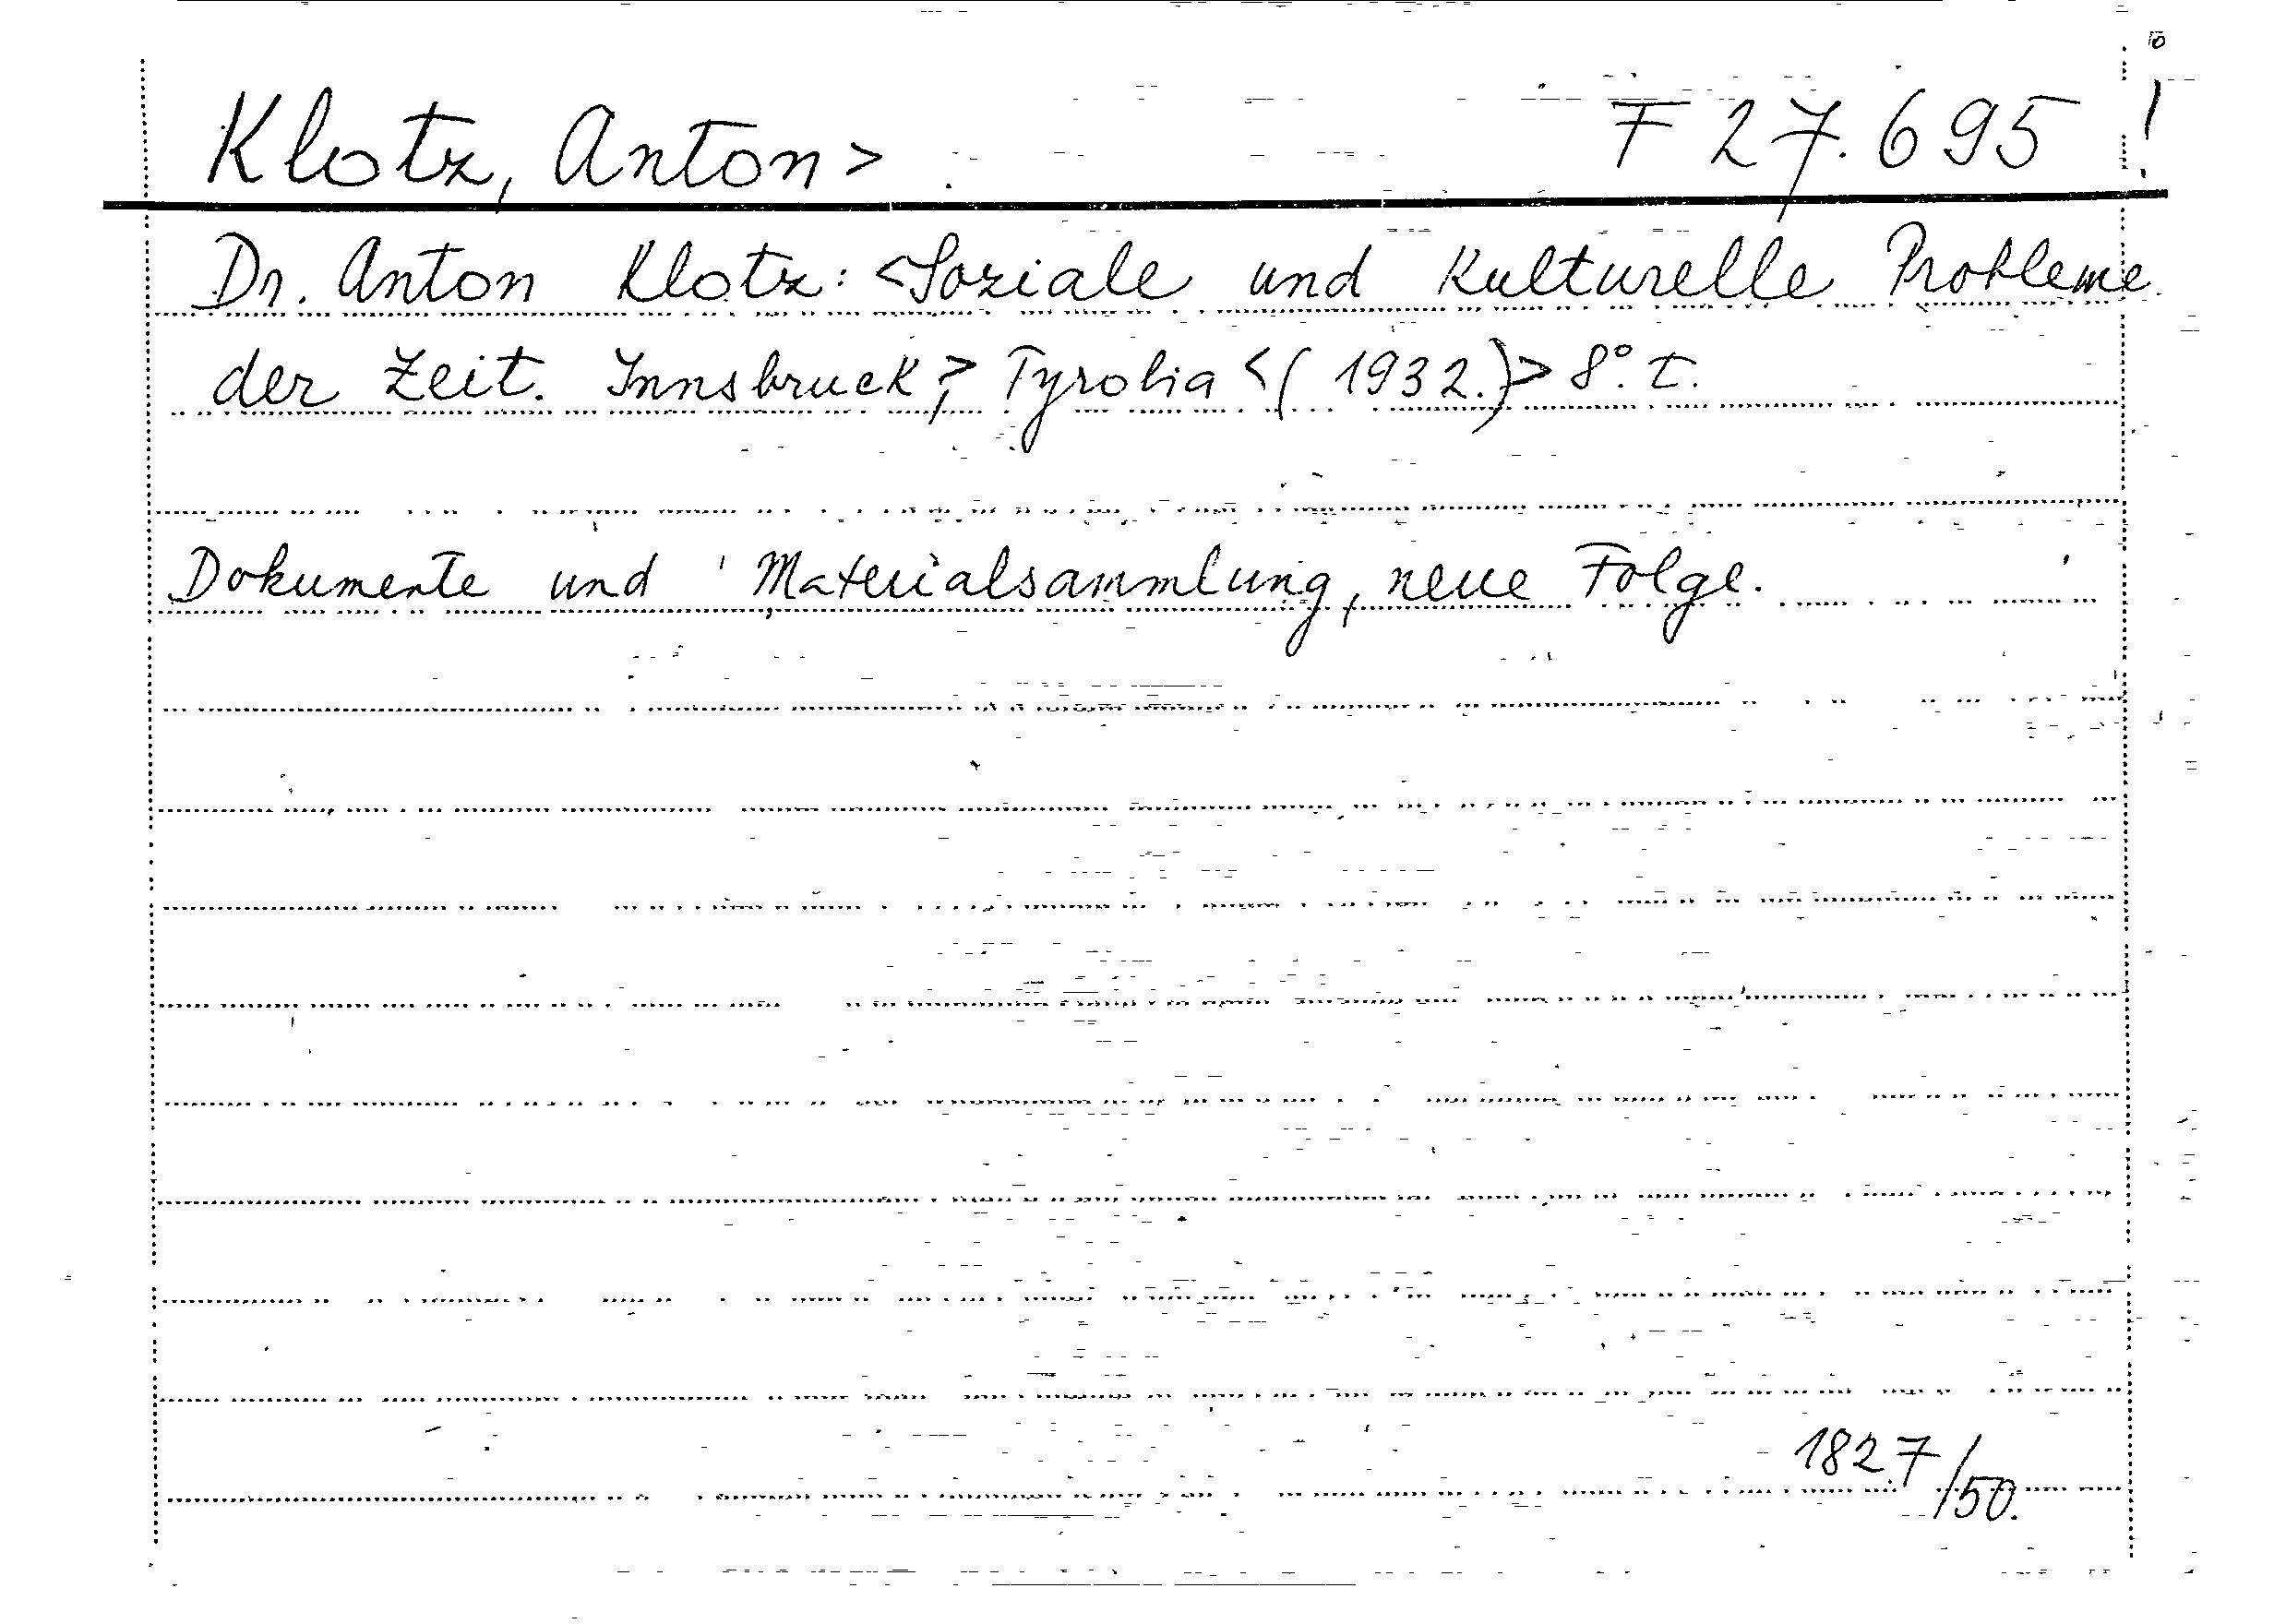 Klotz, Anton> F 27.695 !
Dr. Anton Klotz: <Soziale und Kulturelle Probleme
der Zeit. Innsbruck,> Tyrolia <(1932.)> 8°. t.
Dokumente und Materialsammlung, neue Folge.
1827/50.